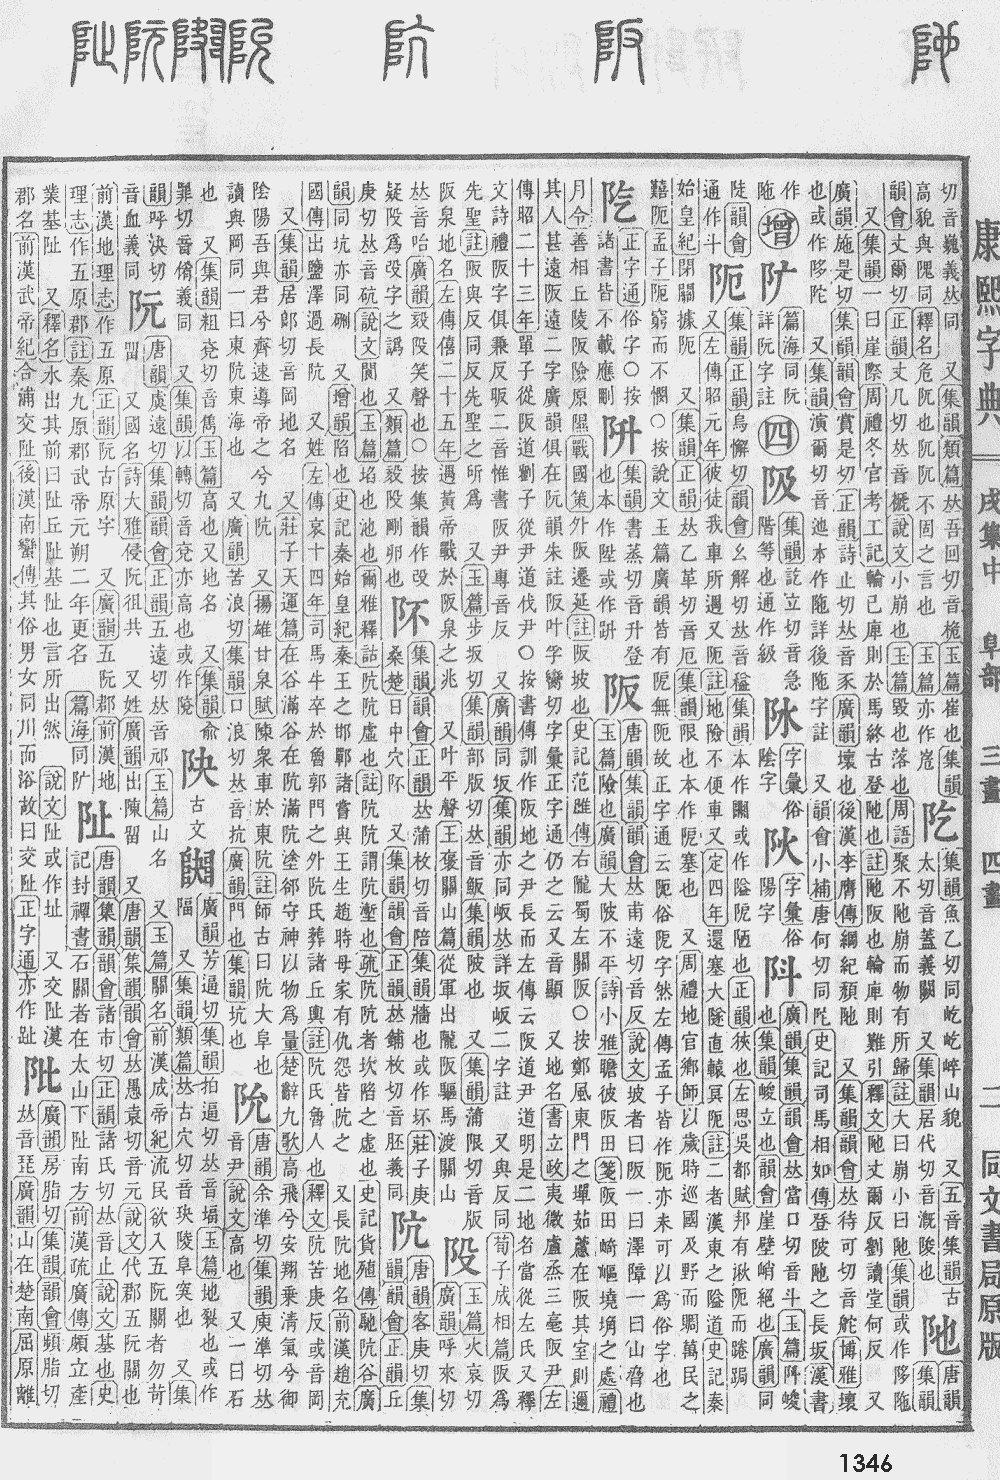 康熙字典
戌集中 阜部 三畫 四畫
二 同文書局原版
切音巍義𠀤同 又集韻類篇𠀤吾回切音桅玉篇崔也集韻
高貌與隗同釋名危阢也阢阢不固之言也 玉篇亦作
阣
集韻魚乙切同屹屹崪山貌 又五音集韻古
太切音蓋義闕 又集韻居代切音漑陵也
阤
唐韻
集韻
韻會丈爾切正韻丈几切𠀤音褫說文小崩也玉篇毀也落也周語聚不阤崩而物有所歸註大曰崩小曰阤集韻或作陊陁
又集韻一曰崖際周禮冬官考工記輪已庳則於馬終古登阤也註阤阪也輪庳則難引釋文阤丈爾反劉讀堂何反 又
廣韻施是切集韻韻會賞是切正韻詩止切𠀤音豕廣韻壞也後漢李膺傳綱紀頹阤 又集韻韻會𠀤待可切音舵博雅壞
也或作陊陀 又集韻演爾切音迆本作陁詳後陁字註 又韻會小補唐何切同陀史記司馬相如傳登陂阤之長坂漢書
作
陁
增
阝
篇海同阮
詳阮字註
四
阪
集韻訖立切音急
階等也通作級
阥
字彙俗
陰字
阦
字彙俗
陽字
阧
廣韻集韻韻會𠀤當口切音斗玉篇阧峻
也集韻峻立也韻會崖壁峭絕也廣韻同
陡韻會
通作斗
阨
集韻正韻烏懈切韻會幺解切𠀤音隘集韻本作𨽼或作隘阸陋也正韻狹也左思吳都賦邦有湫阨而踡跼
又左傳昭元年彼徒我車所遇又阨註地險不便車又定四年還塞大隧直轅冥阨註二者漢東之隘道史記秦
始皇紀閉關據阨 又集韻正韻𠀤乙革切音厄集韻限也本作阸塞也 又周禮地官鄉師以歲時巡國及野而賙萬民之
囏阨孟子阨窮而不憫○按說文玉篇廣韻皆有阸無阨故正字通云阨俗阸字然左傳孟子皆作阨亦未可以爲俗字也
阣
正字通俗字○按
諸書皆不載應刪
阩
集韻書蒸切音升登
也本作陞或作䟫
阪
唐韻集韻韻會𠀤甫遠切音反說文坡者曰阪一曰澤障一曰山脅也
玉篇險也廣韻大陂不平詩小雅瞻彼阪田箋阪田崎嶇境埆之處禮
月令善相丘陵阪險原隰戰國策外阪遷延註阪坡也史記范雎傳右隴蜀左關阪○按鄭風東門之墠茹藘在阪其室則邇
其人甚遠阪遠二字廣韻俱在阮韻朱註阪叶孚臠切字彙正字通仍之云又音顯 又地名書立政夷微盧烝三亳阪尹左
傳昭二十三年單子從阪道劉子從尹道伐尹○按書傳訓作阪地之尹長而左傳云阪道尹道明是二地名當從左氏又釋
文詩禮阪字俱兼反昄二音惟書阪尹專音反 又廣韻同坂集韻亦同岅𠀤詳坂岅二字註 又與反同荀子成相篇阪爲
先聖註阪與反同反先聖之所爲 又玉篇步坂切集韻部版切𠀤音飯集韻陂也 又集韻蒲限切音版
阪泉地名左傳僖二十五年遇黃帝戰於阪泉之兆 又叶平聲王褒關山篇從軍出隴阪驅馬渡關山
阸
玉篇火哀切
廣韻呼來切
𠀤音咍廣韻㱾毅笑聲也○按集韻作改
疑毅爲㱾字之譌 又類篇㱾毅剛卯也
阫
集韻韻會正韻𠀤蒲枚切音陪集韻牆也或作坏莊子庚
桑楚日中穴阫 又集韻韻會正韻𠀤鋪枚切音胚義同
阬
唐韻客庚切集
韻韻會正韻丘
庚切𠀤音硻說文閬也玉篇塪也池也爾雅釋詁阬阬虛也註阬阬謂阬壍也疏阬阬者坎陷之虛也史記貨殖傳馳阬谷廣
韻同坑亦同硎 又增韻陷也史記秦始皇紀秦王之邯鄲諸嘗與王生趙時母家有仇怨皆阬之 又長阬地名前漢趙充
國傳出鹽澤過長阬 又姓左傳哀十四年司馬牛卒於魯郭門之外阬氏葬諸丘輿註阬氏魯人也釋文阬苦庚反或音岡
又集韻居郎切音岡地名 又莊子天運篇在谷滿谷在阬滿阬塗郤守神以物爲量楚辭九歌高飛兮安翔乗清氣兮御
陰陽吾與君兮齊速導帝之兮九阬 又揚雄甘泉賦陳衆車於東阬註師古曰阬大阜也
讀與岡同一曰東阬東海也 又廣韻苦浪切集韻口浪切𠀤音抗廣韻門也集韻坑也
阭
唐韻余準切集韻庾準切𠀤
音尹說文高也 又一曰石
也 又集韻粗兗切音雋玉篇高也又地名 又集韻兪
罪切音䧅義同 又集韻以轉切音兗亦高也或作陵
䦼
古文
𨺅
廣韻芳逼切集韻拍逼切𠀤音堛玉篇地裂也或作
𨻵 又集韻類篇𠀤古穴切音玦陵阜突也 又集
韻呼決切
音血義同
阮
唐韻虞遠切集韻韻會正韻五遠切𠀤音邧玉篇山名 又玉篇關名前漢成帝紀流民欲入五阮關者勿苛
畱 又國名詩大雅侵阮徂共 又姓廣韻出陳留 又唐韻集韻韻會𠀤愚袁切音元說文代郡五阮關也
前漢地理志作五原正韻阮古原字 又廣韻五阮郡前漢地
理志作五原郡註秦九原郡武帝元朔二年更名 篇海同阝
阯
唐韻集韻韻會諸市切正韻諸氏切𠀤音止說文基也史
記封禪書石閭者在太山下阯南方前漢疏廣傳頗立產
業基阯 又釋名水出其前曰阯丘阯基阯也言所出然 說文阯或作址 又交阯漢
郡名前漢武帝紀合浦交阯後漢南蠻傳其俗男女同川而浴故曰交阯正字通亦作趾
阰
廣韻房脂切集韻韻會頻脂切
𠀤音琵廣韻山在楚南屈原離
1346